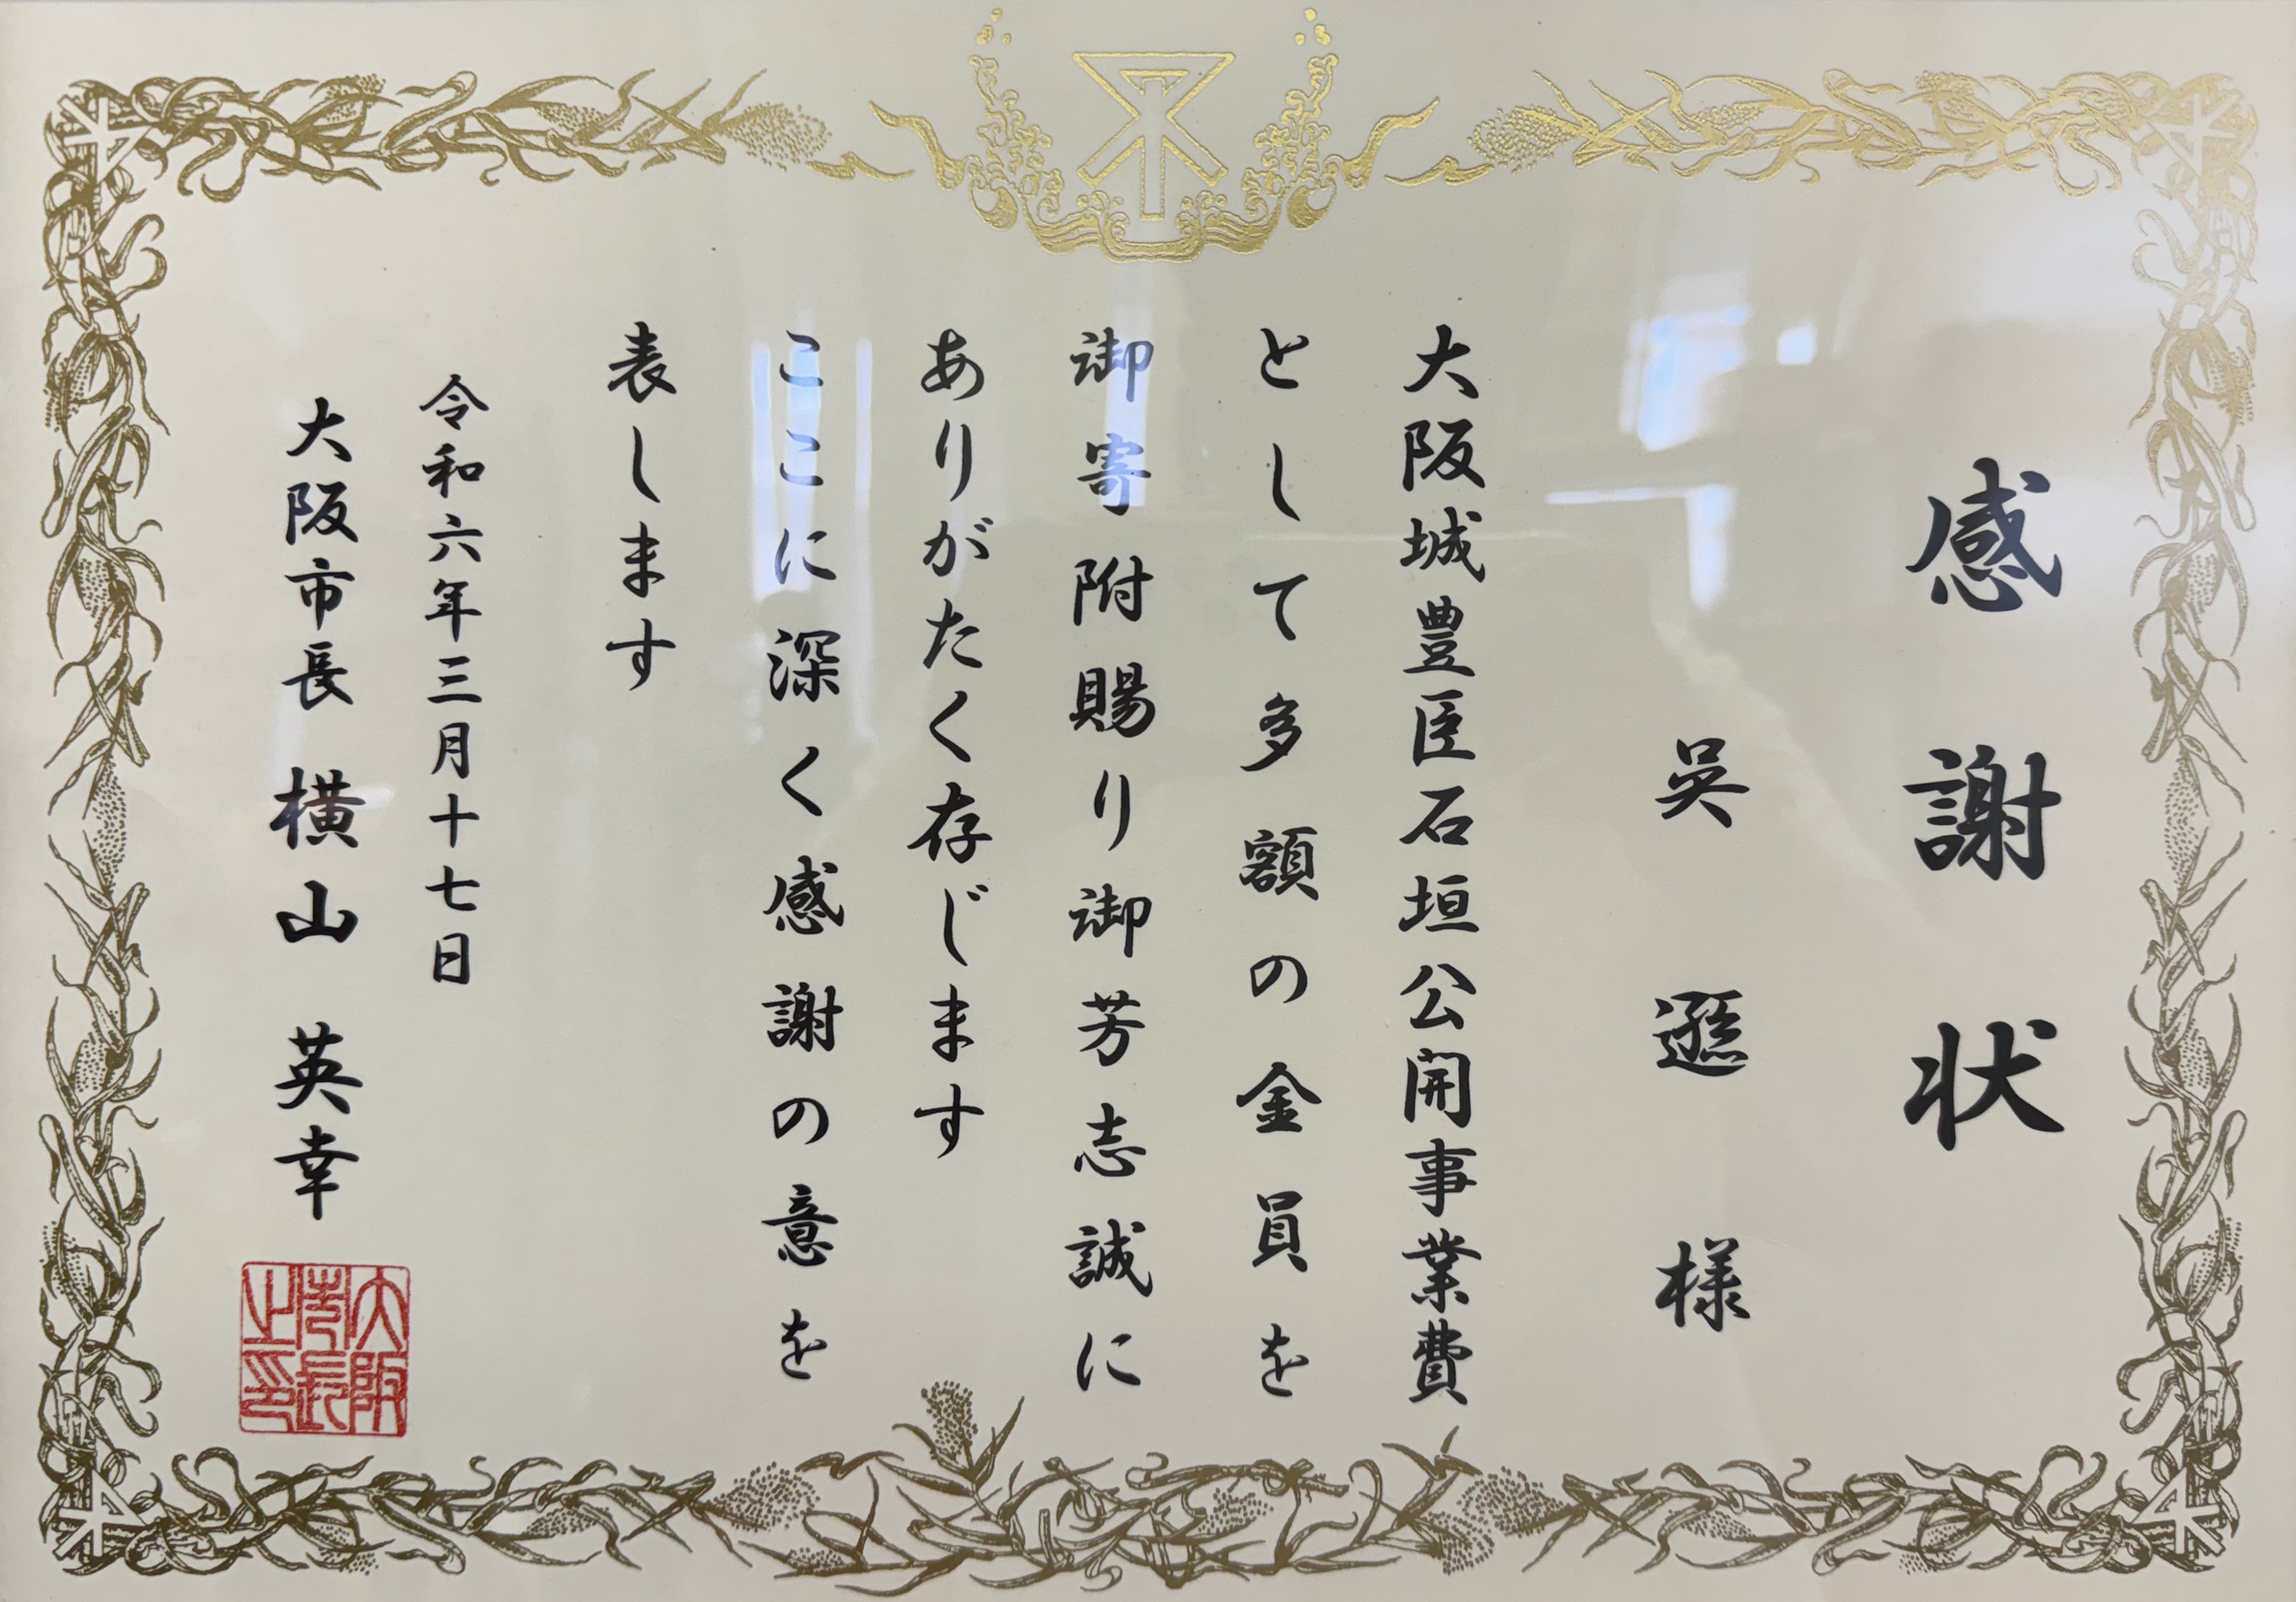 感謝状
呉遜様
大阪城豊臣石垣公開事業費
として多額の金員を
御寄附賜り御芳志誠に
ありがたく存じます
ここに深く感謝の意を
表します
令和六年三月十七日
大阪市長 横山英幸
大阪市長之印